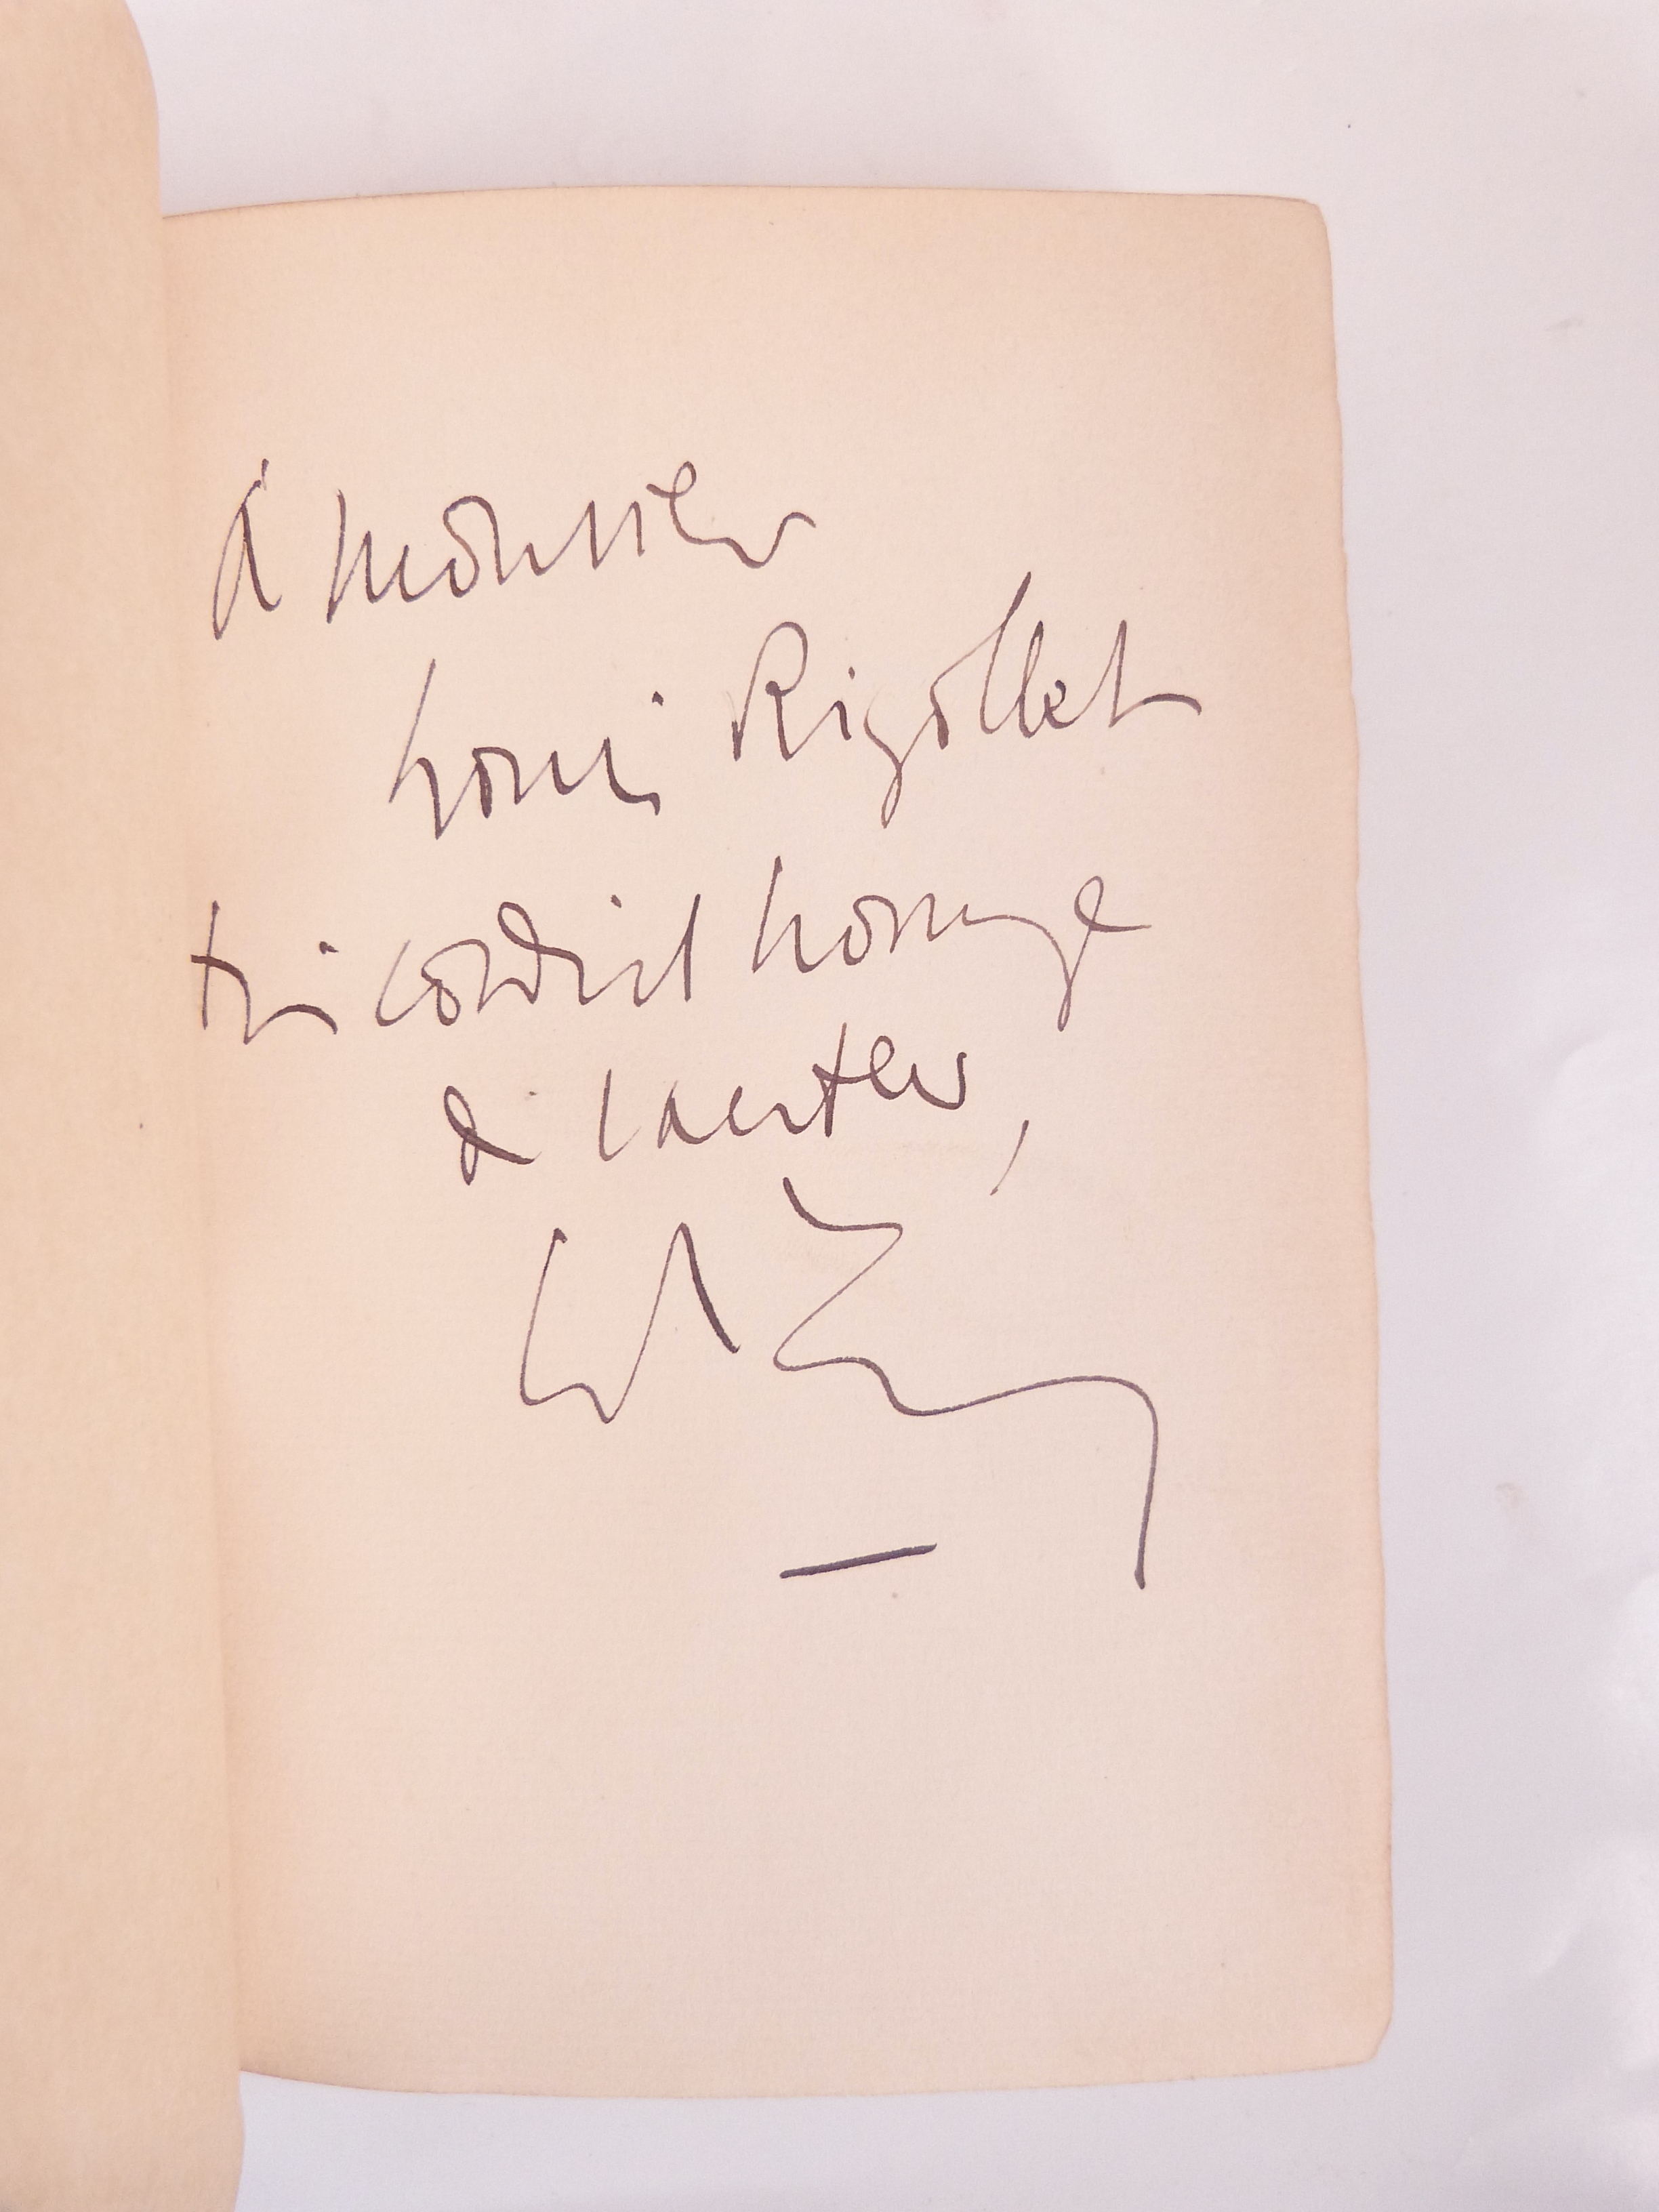 à Monsieur
Louis Rigollet
très cordial hommage
de l'auteur,